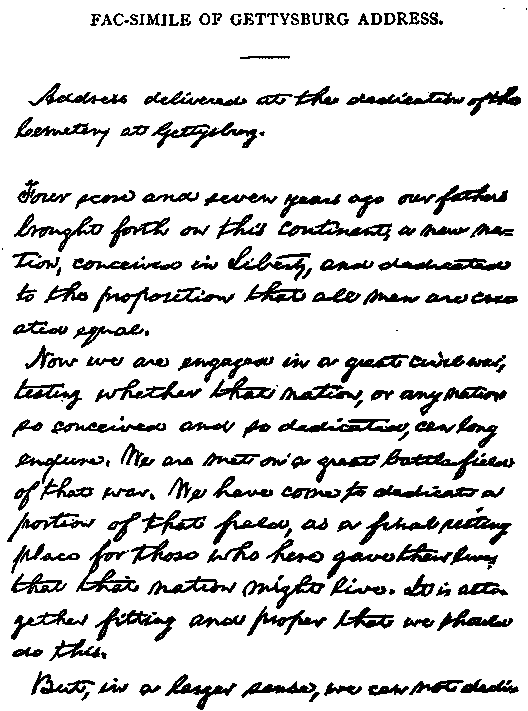 FAC-SIMILE OF GETTYSBURG ADDRESS.
Address delivered at the dedication of the
Cemetery at Gettysburg.
Four score and seven years ago our fathers
brought forth on this continent, a new na=
tion, conceived in Liberty, and dedicated
to the proposition that all men are cre
ated equal.
Now we are engaged in a great civil war,
testing whether that nation, or any nation
so conceived and so dedicated, can long
endure. We are met on a great battle field
of that war. We have come to dedicate a
portion of that field, as a final resting
place for those who here gave their lives
that that nation might live. It is alto
gether fitting and proper that we should
do this.
But, in a larger sense, we can not dedi